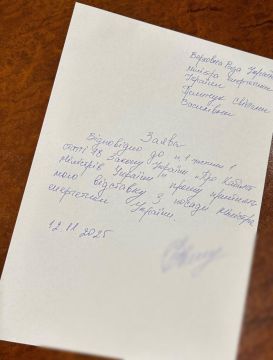 Верховна Рада України
міністра енергетики
України
Гринчук Світлани
Василівни
Заява
Відповідно до п. 1 частини 1
статті 18 Закону України "Про Кабінет
Міністрів України" прошу прийняти
мою відставку з посади міністра
енергетики України.
12.11.2025